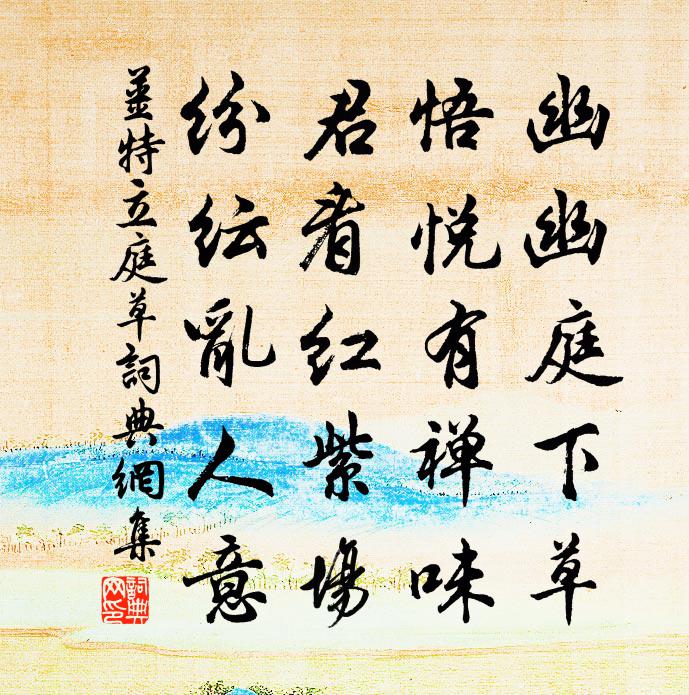 幽幽庭下草
悟悅有禪味
君看紅紫場
紛紜亂人意
薑特立庭草詞典網集
詞典
网印